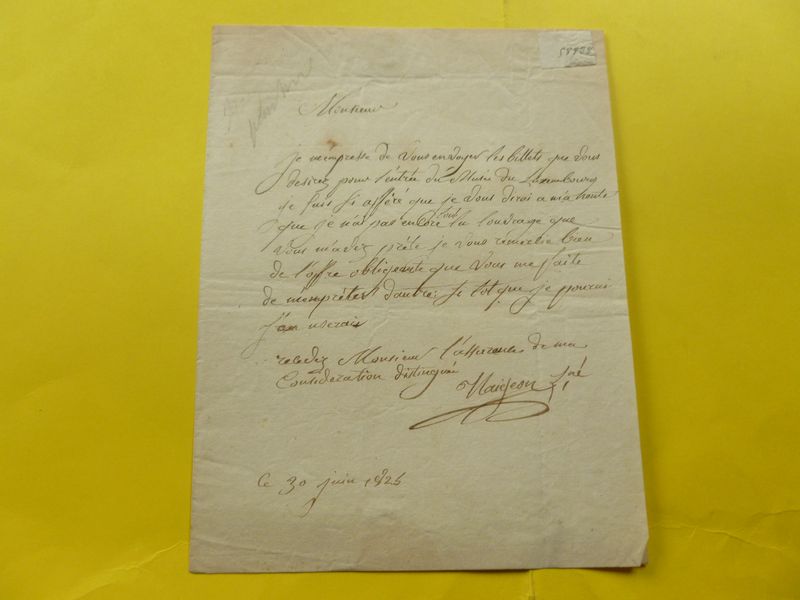 58808
Monsieur
je m'empresse de vous envoyer les billets que vous
desirez pour l'entrée du Musée du Luxembourg
je suis si afféré que je vous dirai a ma honte
que je n'ai pas encore tout lu louvrage que
vous m'avez prété je vous remercie bien
de l'offre obligente que vous me faite
de m'enprêter d'autre si tot que je pourai
j'en userai
recevez Monsieur l'assurance de ma
Consideration distinguée
Naigeon
Ce 30 juin 182